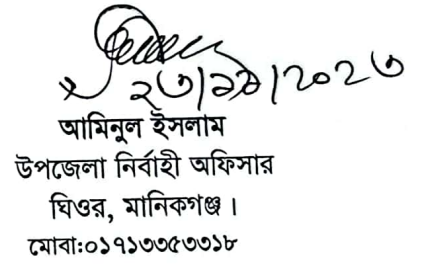 ২৩/১১/২০২৩
আমিনুল ইসলাম
উপজেলা নির্বাহী অফিসার
ঘিওর, মানিকগঞ্জ ।
মোবা:০১৭১৩৩৫৩৩১৮